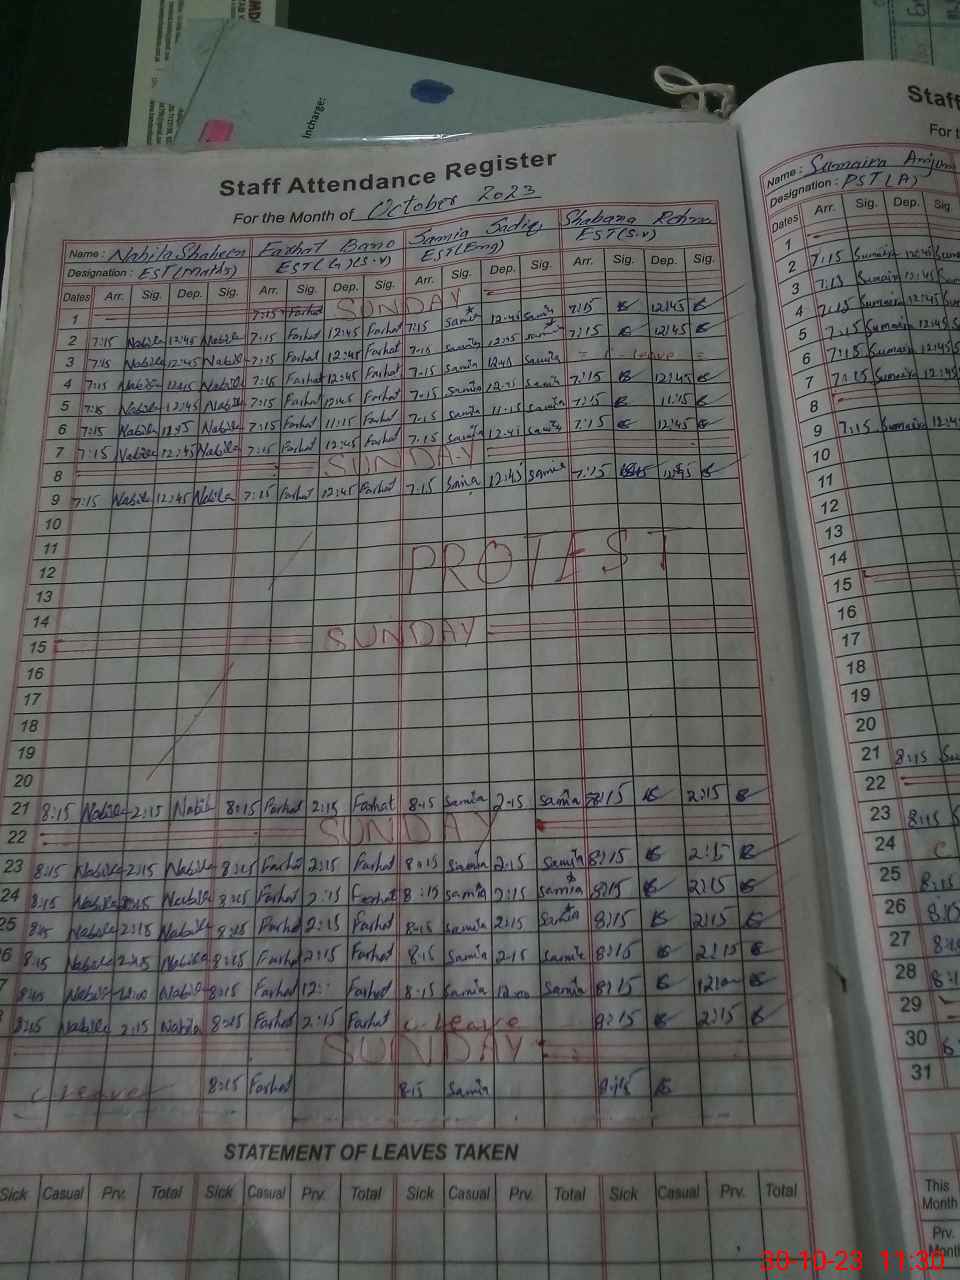 Incharge:
Staff Attendance Register
For the Month of October 2023
Name: Nabila Shaheen Farhat Bano Samia Sadiq Shabana Rehm
Designation: EST(Maths) EST(G)(S.V) EST(Eng) EST(S.V)
Dates Arr. Sig. Dep. Sig. Arr. Sig. Dep. Sig. Arr. Sig. Dep. Sig. Arr. Sig. Dep. Sig.
1 7:15 Farhat SUNDAY
2 7:15 Nabila 12:45 Nabila 7:15 Farhat 12:45 Farhat 7:15 Samia 12:45 Samia 7:15 12:45
3 7:15 Nabila 12:45 Nabila 7:15 Farhat 12:45 Farhat 7:15 Samia Samia 7:15 12:45
4 7:15 Nabila Nabila 7:15 Farhat 12:45 Farhat 7:15 Samia Samia C-leave
5 7:15 Nabila 12:45 Nabila 7:15 Farhat 12:45 Farhat 7:15 Samia Samia 7:15 12:45
6 7:15 Nabila Nabila 7:15 Farhat 11:15 Farhat 7:15 Samia 11:15 Samia 7:15 11:15
7 7:15 Nabila 12:45 Nabila 7:15 Farhat 12:45 Farhat 7:15 Samia Samia 7:15 12:45
8 SUNDAY
9 7:15 Nabila 12:45 Nabila 7:15 Farhat 12:45 Farhat 7:15 Samia 12:45 Samia 7:15 12:45
10
11
12 PROTEST
13
14
15 SUNDAY
16
17
18
19
20
21 8:15 Nabila 2:15 Nabila 8:15 Farhat 2:15 Farhat 8:15 Samia 2:15 Samia 8:15 2:15
22 SUNDAY
23 8:15 Nabila 2:15 Nabila 8:15 Farhat 2:15 Farhat 8:15 Samia 2:15 Samia 8:15 2:15
24 8:15 Nabila 2:15 Nabila 8:15 Farhat 2:15 Farhat 8:15 Samia 2:15 Samia 8:15 2:15
25 8:15 Nabila 2:15 Nabila 8:15 Farhat 2:15 Farhat 8:15 Samia 2:15 Samia 8:15 2:15
6 8:15 Nabila 2:15 Nabila 8:15 Farhat 2:15 Farhat 8:15 Samia 2:15 Samia 8:15 2:15
7 8:15 Nabila 12:00 Nabila 8:15 Farhat 12: Farhat 8:15 Samia 12:00 Samia 8:15 12:00
8:15 Nabila 2:15 Nabila 8:15 Farhat 2:15 Farhat C-Leave 8:15 2:15
SUNDAY
C Leave 8:15 Farhat 8:15 Samia 8:15
STATEMENT OF LEAVES TAKEN
Sick Casual Prv. Total Sick Casual Prv. Total Sick Casual Prv. Total Sick Casual Prv. Total
Staff
For t
Name: Sumaira Anjum
Designation: PST(A)
Dates Arr. Sig. Dep. Sig.
1
2 7:15 Sumaira 12:45
3 7:15 Sumaira 12:45
4 7:15 Sumaira 12:45
5 7:15 Sumaira
6 7:15 Sumaira
7 7:15 Sumaira 12:45
8
9 7:15 Sumaira 12:4
10
11
12
13
14
15
16
17
18
19
20
21 8:15 Su
22
23 8:15 S
24 C
25 8:15
26 8:15
27
28
29
30
31
This
Month
Prv.
Month
30-10-23 11:30